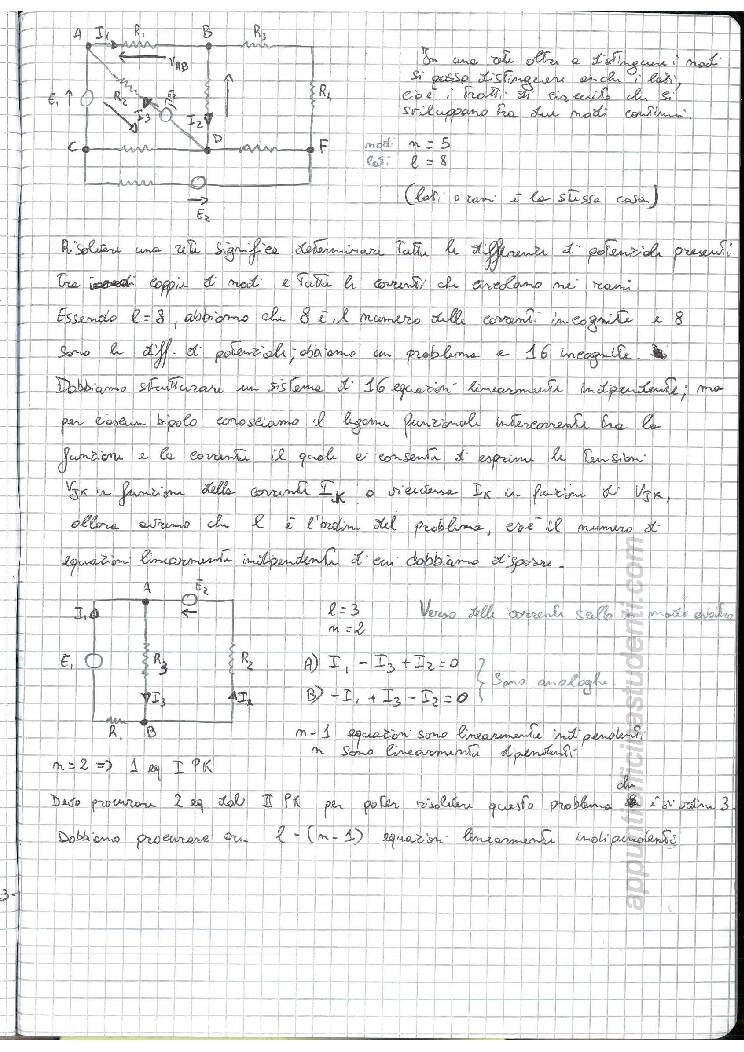 A I_K R_1 B R_3
V_AB
In una rete oltre a distinguere i nodi
si possa distinguere anche i lati,
cioè i tratti di circuito che si
sviluppano tra due nodi continui.
E_1 R_2 I_3 E_3 I_2 R_4
C D F
nodi n = 5
lati l = 8
E_2
(lati o rami è la stessa cosa)
Risolvere una rete significa determinare tutte le differenze di potenziale presenti
tra coppie di nodi e tutte le correnti che circolano nei rami
Essendo l = 8, abbiamo che 8 è il numero delle correnti incognite e 8
sono le diff. di potenziale; abbiamo un problema a 16 incognite.
Dobbiamo strutturare un sistema di 16 equazioni linearmente indipendente; ma
per ciascun bipolo conosciamo il legame funzionale intercorrente tra la
funzione e la corrente il quale ci consente di esprime le tensioni
V_JK in funzione della corrente I_JK o viceversa I_K in funzione di V_JK,
allora avremo che l è l'ordine del problema, cioè il numero di
equazioni linearmente indipendente di cui dobbiamo disporre.
A E_2
I_1
l = 3
n = 2
Verso delle corrente scelto in modo
E_1 R_3 R_2
A) I_1 - I_3 + I_2 = 0
B) -I_1 + I_3 - I_2 = 0
Sono analoghe
I_3 I_2
R_1 B
n-1 equazioni sono linearmente indipendenti
n sono linearmente dipendenti
n = 2 => 1 eq I PK
Devo procurare 2 eq dal II PK per poter risolvere questo problema che è di ordine 3.
Dobbiamo procurare l - (n - 1) equazioni linearmente indipendenti
3-
appuntificiostudenti.com